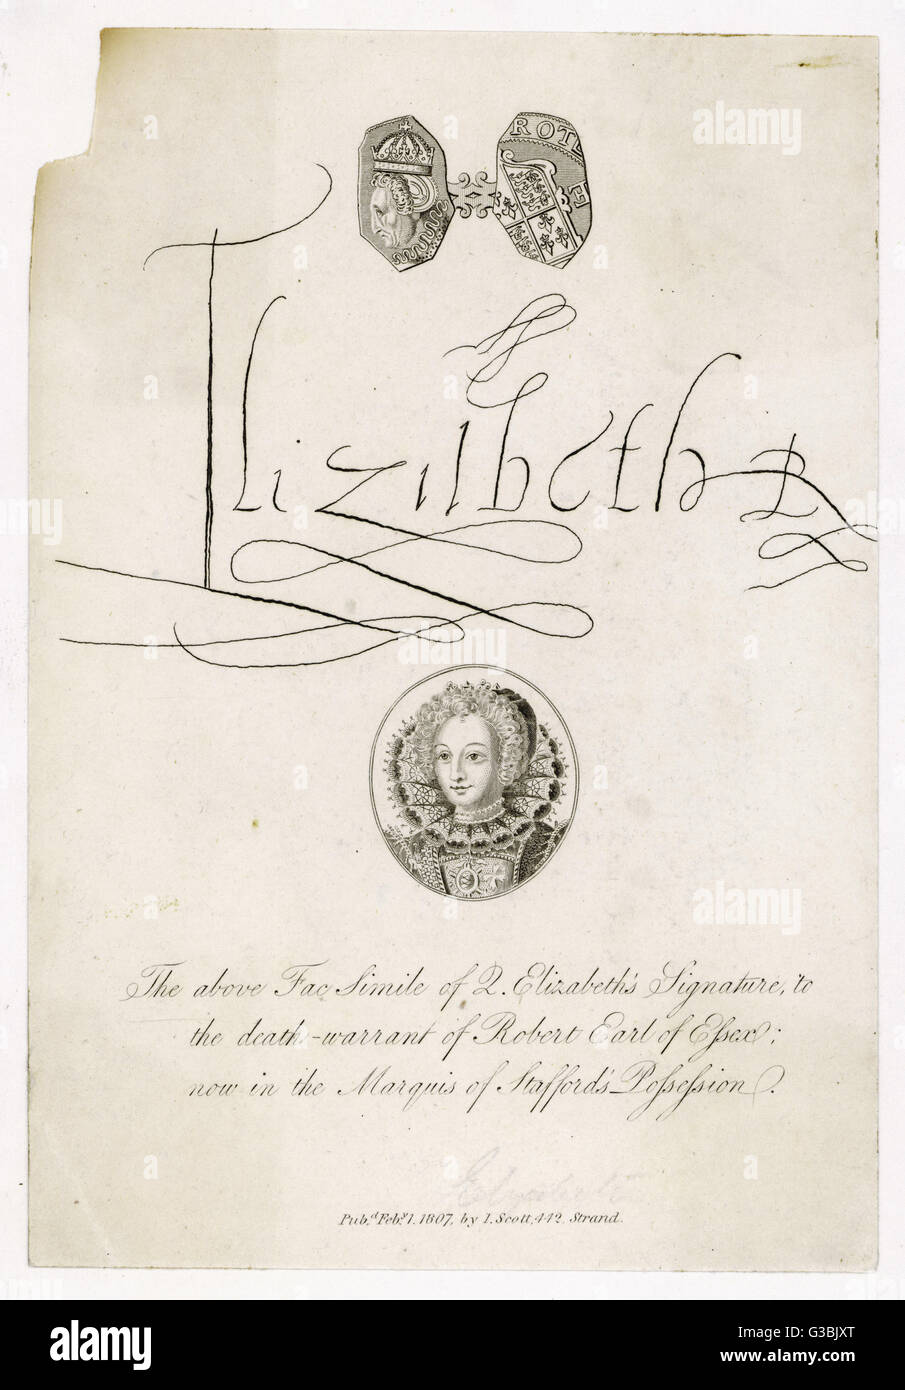 ROTE
E
Elizabeth R
The above Fac Simile of Q. Elizabeth's Signature, to
the death-warrant of Robert Earl of Essex;
now in the Marquis of Stafford's Possession.
Elizabeth
Pub.d Feb.y 1. 1807, by I. Scott, 442, Strand.
alamy
Image ID: G3BJXT
www.alamy.com